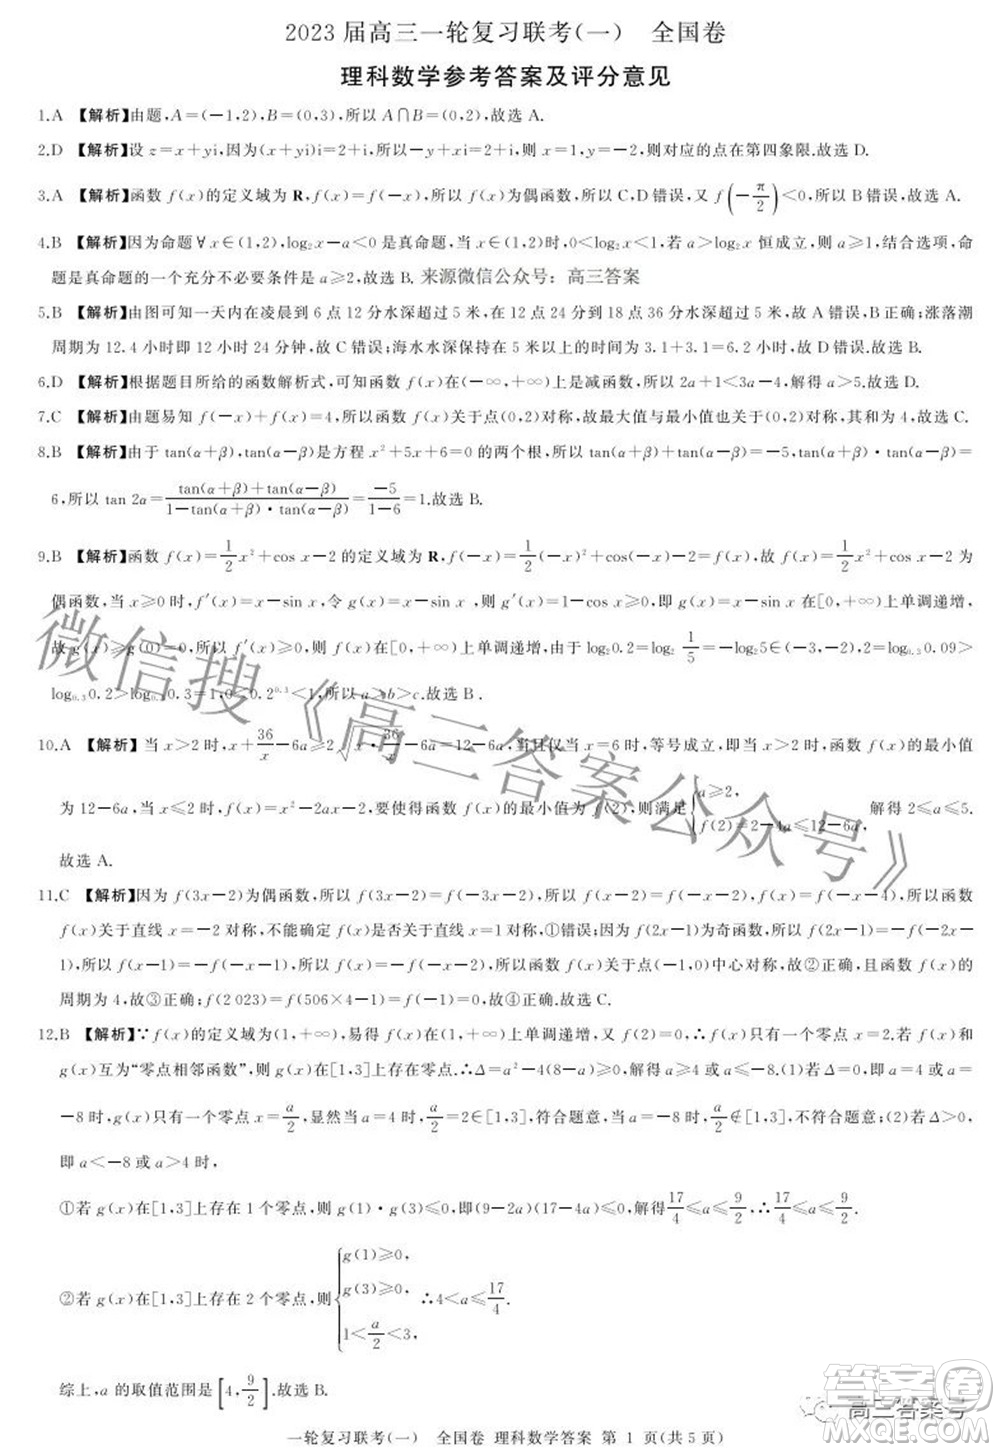 2023 届高三一轮复习联考(一) 全国卷
理科数学参考答案及评分意见
1.A 【解析】由题,A=(-1,2),B=(0,3),所以 A∩B=(0,2),故选 A.
2.D 【解析】设 z=x+yi,因为(x+yi)i=2+i,所以-y+xi=2+i,所以 x=1,y=-2,则对应的点在第四象限.故选 D.
3.A 【解析】函数 f(x)的定义域为 R,f(x)=f(-x),所以 f(x)为偶函数,所以 C,D 错误,又 f(-π/2)<0,所以 B 错误,故选 A.
4.B 【解析】因为命题∀x∈(1,2),log₂x-a<0 是真命题,当 x∈(1,2)时,0<log₂x<1,若 a>log₂x 恒成立,则 a≥1,结合选项,命
题是真命题的一个充分不必要条件是 a≥2,故选 B. 来源微信公众号：高三答案
5.B 【解析】由图可知一天内在凌晨到 6 点 12 分水深超过 5 米,在 12 点 24 分到 18 点 36 分水深超过 5 米,故 A 错误,B 正确;涨落潮
周期为 12.4 小时即 12 小时 24 分钟,故 C 错误;海水水深保持在 5 米以上的时间为 3.1+3.1=6.2 小时,故 D 错误.故选 B.
6.D 【解析】根据题目所给的函数解析式,可知函数 f(x)在(-∞,+∞)上是减函数,所以 2a+1<3a-4,解得 a>5.故选 D.
7.C 【解析】由题易知 f(-x)+f(x)=4,所以函数 f(x)关于点(0,2)对称,故最大值与最小值也关于(0,2)对称,其和为 4,故选 C.
8.B 【解析】由于 tan(α+β),tan(α-β)是方程 x²+5x+6=0 的两个根,所以 tan(α+β)+tan(α-β)=-5,tan(α+β)·tan(α-β)=
6,所以 tan 2α=(tan(α+β)+tan(α-β))/(1-tan(α+β)·tan(α-β))=-5/(1-6)=1.故选 B.
9.B 【解析】函数 f(x)=1/2x²+cos x-2 的定义域为 R,f(-x)=1/2(-x)²+cos(-x)-2=f(x),故 f(x)=1/2x²+cos x-2 为
偶函数,当 x≥0 时,f′(x)=x-sin x,令 g(x)=x-sin x,则 g′(x)=1-cos x≥0,所以 g(x)在[0,+∞)上单调递增,
故 g(x)≥g(0)=0,所以 f′(x)≥0,所以 f(x)在[0,+∞)上单调递增,由于 log₂0.2=log₂1/5=-log₂5∈(-3,-2),log₀.₃0.09>
log₀.₃0.2>log₀.₃0.3=1,0<0.2^0.3<1,所以 a>b>c.故选 B.
10.A 【解析】当 x>2 时,x+36/x-6a≥2√(x·36/x)-6a=12-6a,当且仅当 x=6 时,等号成立,即当 x>2 时,函数 f(x)的最小值
为 12-6a,当 x≤2 时,f(x)=x²-2ax-2,要使得函数 f(x)的最小值为 f(2),则满足{a≥2, f(2)=2-4a≤12-6a, 解得 2≤a≤5.
故选 A.
11.C 【解析】因为 f(3x-2)为偶函数,所以 f(3x-2)=f(-3x-2),所以 f(x-2)=f(-x-2),所以 f(x)=f(-x-4),所以函数
f(x)关于直线 x=-2 对称,不能确定 f(x)是否关于直线 x=1 对称,①错误;因为 f(2x-1)为奇函数,所以 f(2x-1)=-f(-2x-
1),所以 f(x-1)=-f(-x-1),所以 f(x)=-f(-x-2),所以函数 f(x)关于点(-1,0)中心对称,故②正确;且函数 f(x)的
周期为 4,故③正确;f(2 023)=f(506×4-1)=f(-1)=0,故④正确.故选 C.
12.B 【解析】∵f(x)的定义域为(1,+∞),易得 f(x)在(1,+∞)上单调递增,又 f(2)=0,∴f(x)只有一个零点 x=2.若 f(x)和
g(x)互为“零点相邻函数”,则 g(x)在[1,3]上存在零点.∴Δ=a²-4(8-a)=a²+4a-32≥0.(1)若 Δ=0,即 a=4 或 a=
-8 时,g(x)只有一个零点 x=a/2,显然当 a=4 时,a/2=2∈[1,3],符合题意,当 a=-8 时,a/2∉[1,3],不符合题意;(2)若 Δ>0,
即 a<-8 或 a>4 时,
①若 g(x)在[1,3]上存在一个零点,则 g(1)·g(3)≤0,即(9-2a)(17-4a)≤0,解得 17/4≤a≤9/2,∴17/4≤a≤9/2.
②若 g(x)在[1,3]上存在 2 个零点,则{g(1)≥0, g(3)≥0, 1<a/2<3, ∴4<a≤17/4.
综上,a 的取值范围是[4,9/2].故选 B.
一轮复习联考(一) 全国卷 理科数学答案 第 1 页(共 5 页)
微信搜《高三答案公众号》
高三答案号
答案圈
MXQE.COM